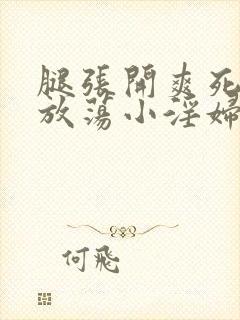 腿張開爽死
放蕩小淫婦
何飛